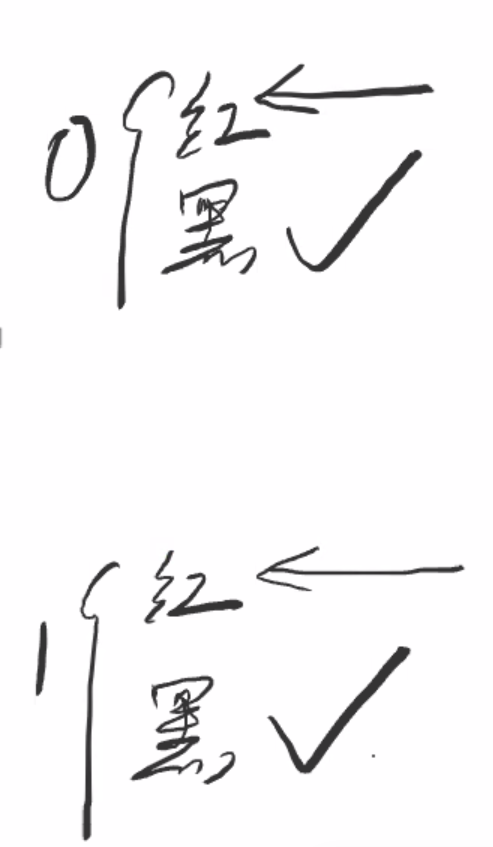 0 红
黑
1 红
黑